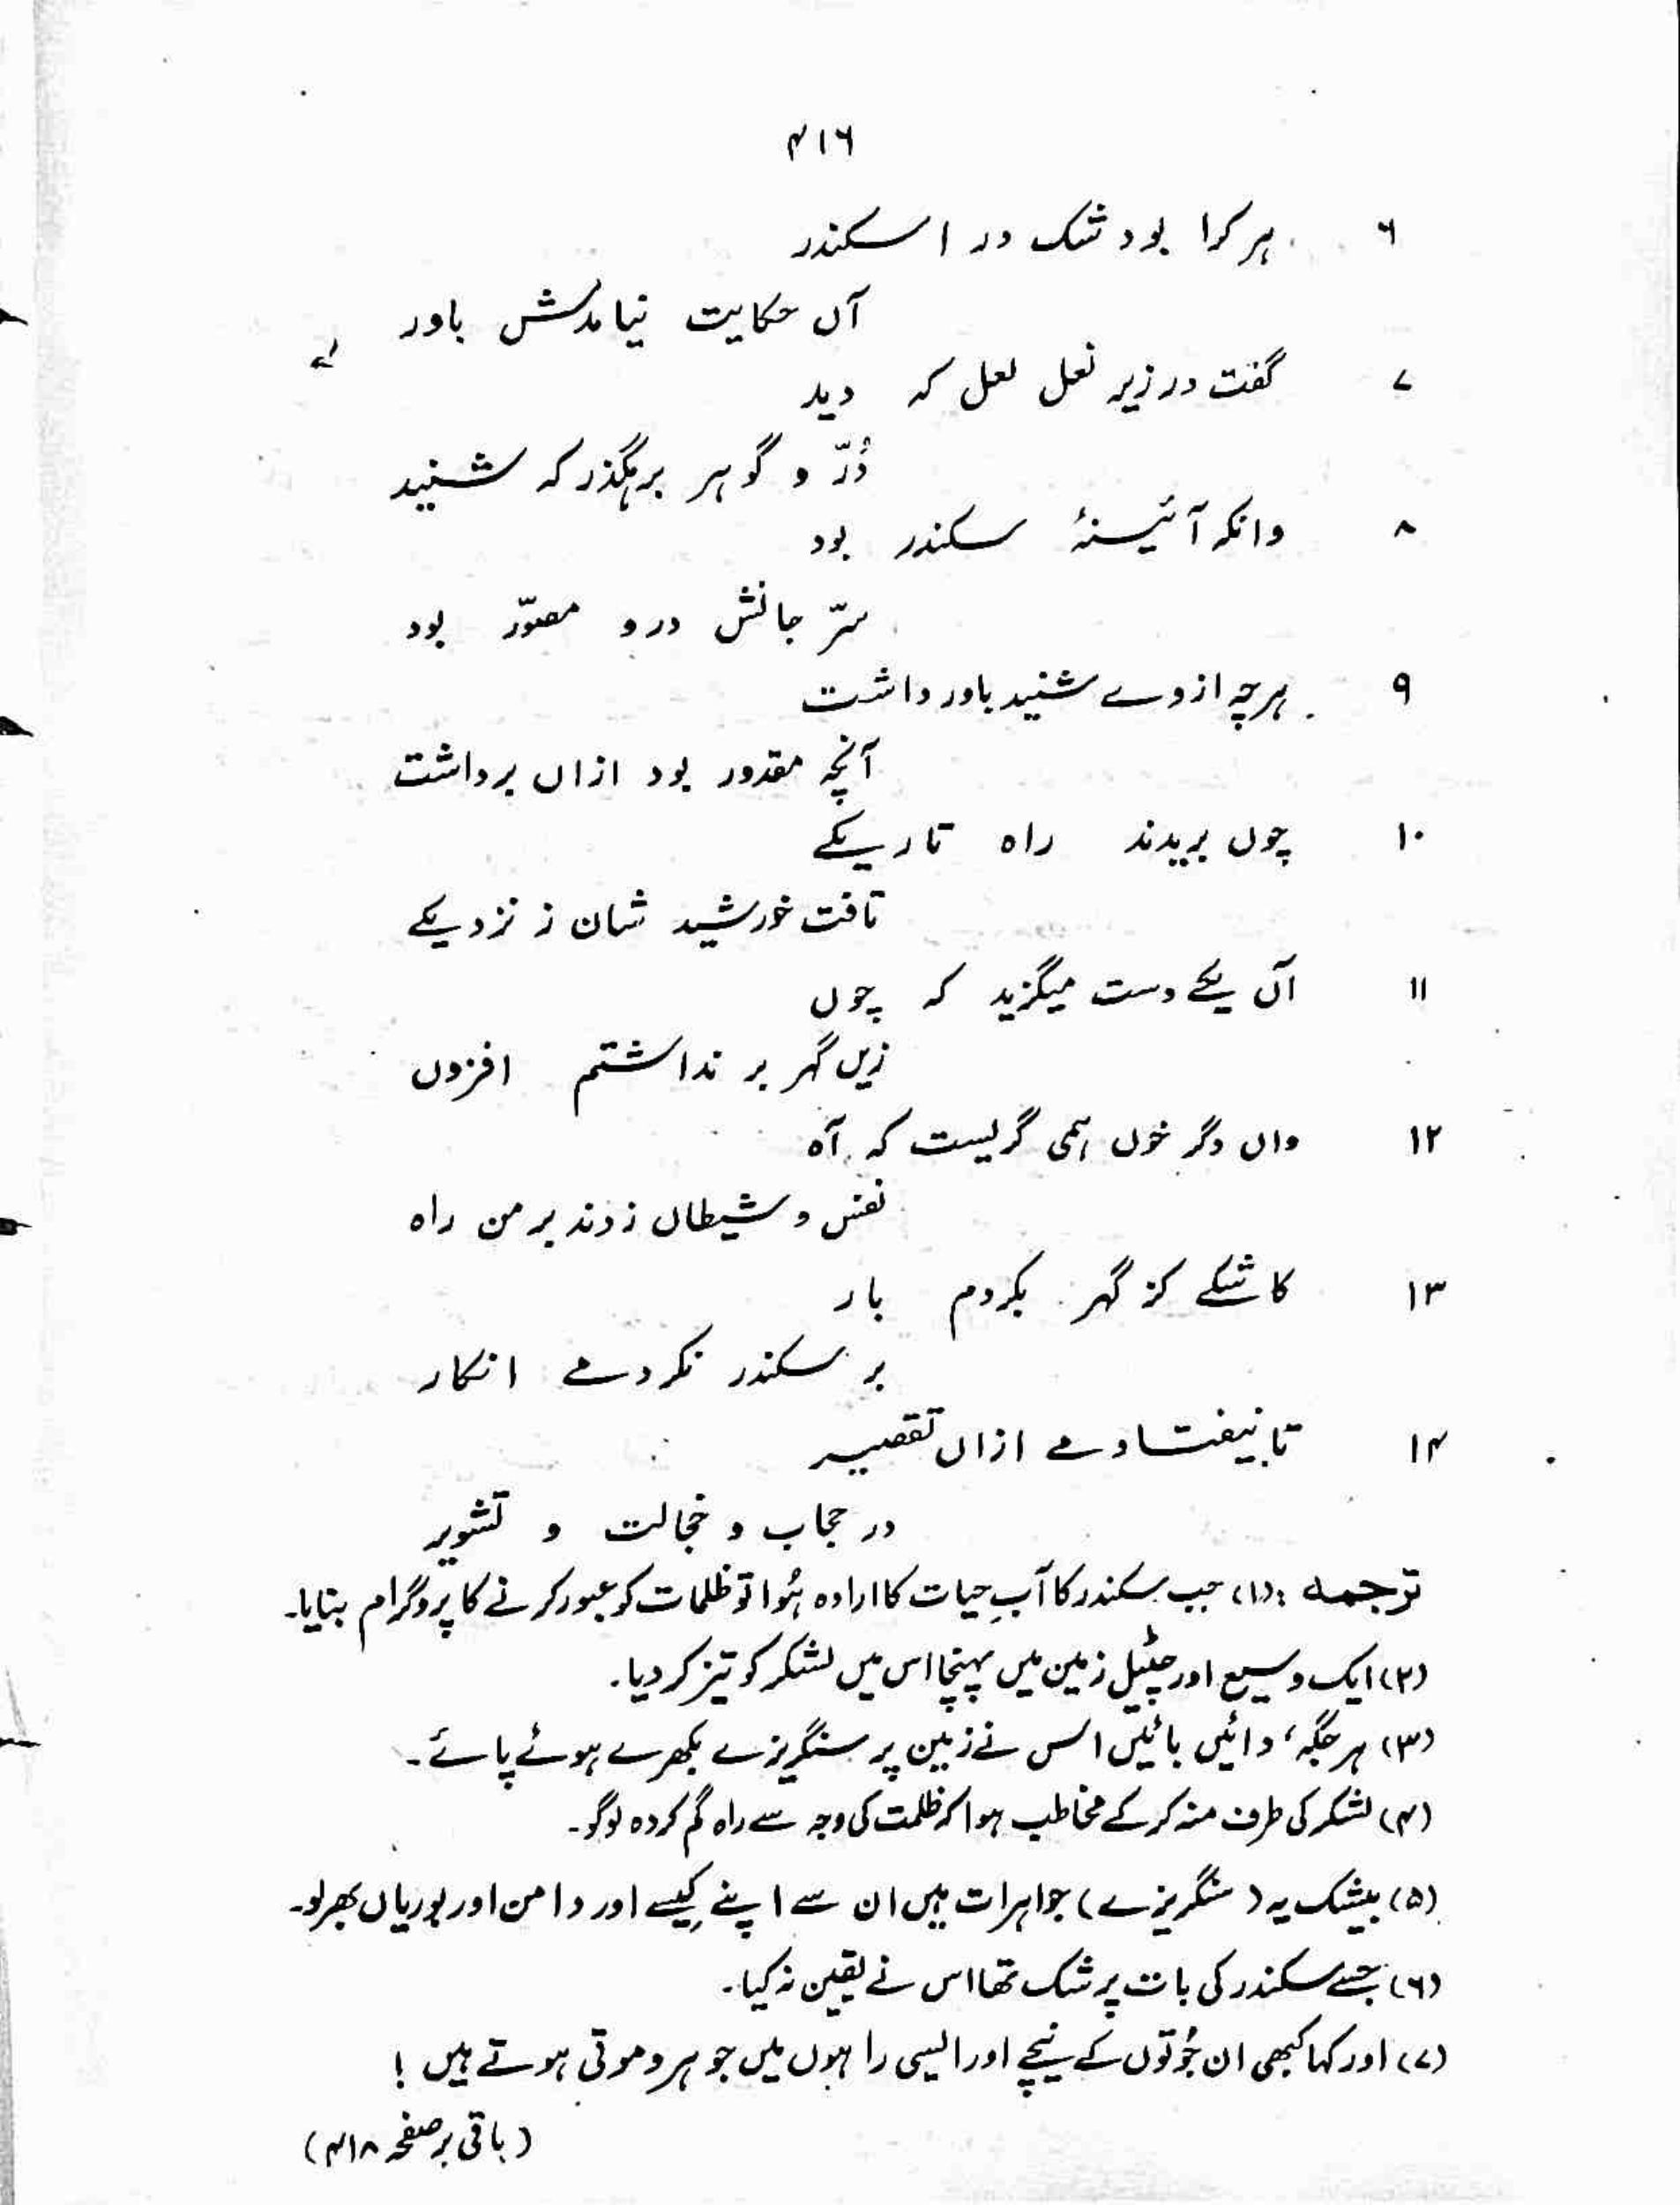 ۴۱۶
۶ ہر کرا بود شک در اسکندر
آں حکایت نیامدش باور
۷ گفت در زیر نعل لعل کہ دید
دُرّ و گوہر برہگذر کہ شنید
۸ وانکہ آئینۂ سکندر بود
سرّ جانش درو مصوّر بود
۹ ہرچہ ازوے شنید باور داشت
آنچہ مقدور بود ازاں برداشت
۱۰ چوں بریدند راہ تاریکے
تافت خورشید شان ز نزدیکے
۱۱ آں یکے دست میگزید کہ چوں
زیں گہر بر نداشتم افزوں
۱۲ واں دگر خوں ہمی گریست کہ آہ
نفس و شیطاں زدند بر من راہ
۱۳ کاشکے کز گہر بکردم بار
بر سکندر نکردمے انکار
۱۴ تا نیفتادمے ازاں تقصیر
در حجاب و خجالت و تشویر
ترجمہ : (۱) جب سکندر کا آبِ حیات کا ارادہ ہُوا تو ظلمات کو عبور کرنے کا پروگرام بنایا۔
(۲) ایک وسیع اور چٹیل زمین میں پہنچا اس میں لشکر کو تیز کر دیا۔
(۳) ہر جگہ، دائیں بائیں اس نے زمین پر سنگریزے بکھرے ہوئے پائے۔
(۴) لشکر کی طرف منہ کر کے مخاطب ہوا کہ ظلمت کی وجہ سے راہ گم کردہ لوگو۔
(۵) بیشک یہ (سنگریزے) جواہرات ہیں ان سے اپنے کِیسے اور دامن اور بوریاں بھر لو۔
(۶) جسے سکندر کی بات پر شک تھا اس نے یقین نہ کیا۔
(۷) اور کہا کبھی ان جُوتوں کے نیچے اور ایسی راہوں میں جوہر و موتی ہوتے ہیں !
(باقی بر صفحہ ۴۱۸)